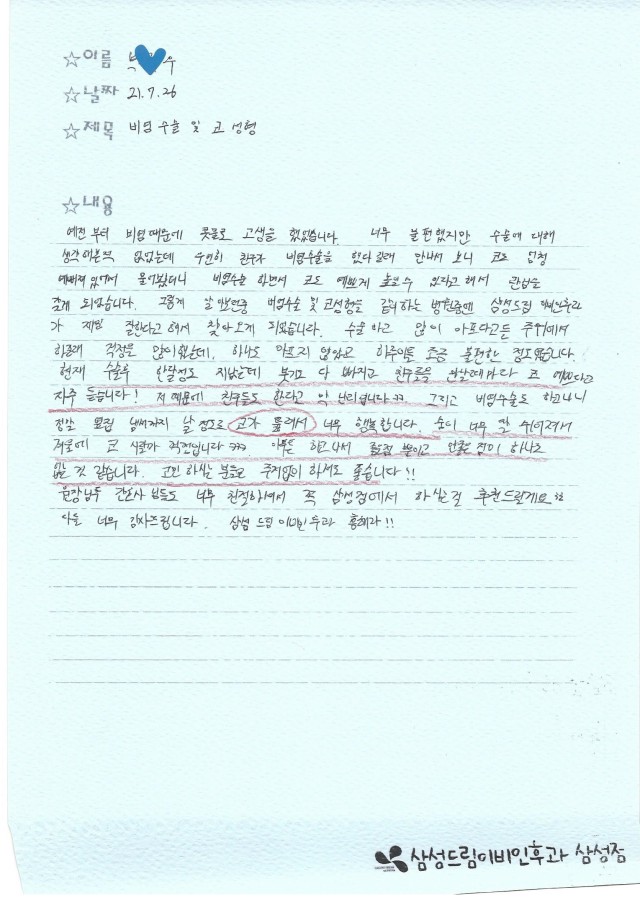 ☆이름 박 우
☆날짜 21.7.26
☆제목 비염수술 및 코 성형
☆내용
예전부터 비염때문에 콧물로 고생을 했었습니다. 너무 불편했지만 수술에 대해
생각해본적 없었는데 우연히 친구가 비염수술을 했다길래 만나서 보니 코도 엄청
예뻐져있어서 물어봤더니 비염수술 하면서 코도 예쁘게 높일수 있다고 해서 관심을
갖게 되었습니다. 그렇게 알아보던중 비염수술 및 코성형을 같이하는 병원중에 삼성드림 이비인후과
가 제일 잘한다고 해서 찾아오게 되었습니다. 수술 하고 많이 아프다고들 주위에서
하길래 걱정을 많이했는데, 하나도 아프지 않았고 하루이틀 조금 불편한 정도였습니다.
현재 수술후 한달정도 지났는데 붓기도 다 빠지고 친구들을 만날때마다 코 예쁘다고
자주 듣습니다! 저 때문에 친구들도 한다고 막 난리입니다ㅋㅋ 그리고 비염수술도 하고나니
정말 몰랐 냄새까지 날 정도로 코가 뚫려서 너무 행복합니다. 숨이 너무 잘 쉬어져서
겨울에 코 시릴까 걱정입니다ㅋㅋㅋ 아무튼 하고나서 좋은점 뿐이고 안좋은 점이 하나도
없는 것 같습니다. 고민 하실 분들은 주저없이 하셔도 좋습니다!!
원장님두 간호사 분들도 너무 친절하셔서 꼭 삼성점에서 하실걸 추천드릴게요!!
다들 너무 감사드립니다. 삼성 드림 이비인후과 흥해라!!
삼성드림이비인후과 삼성점